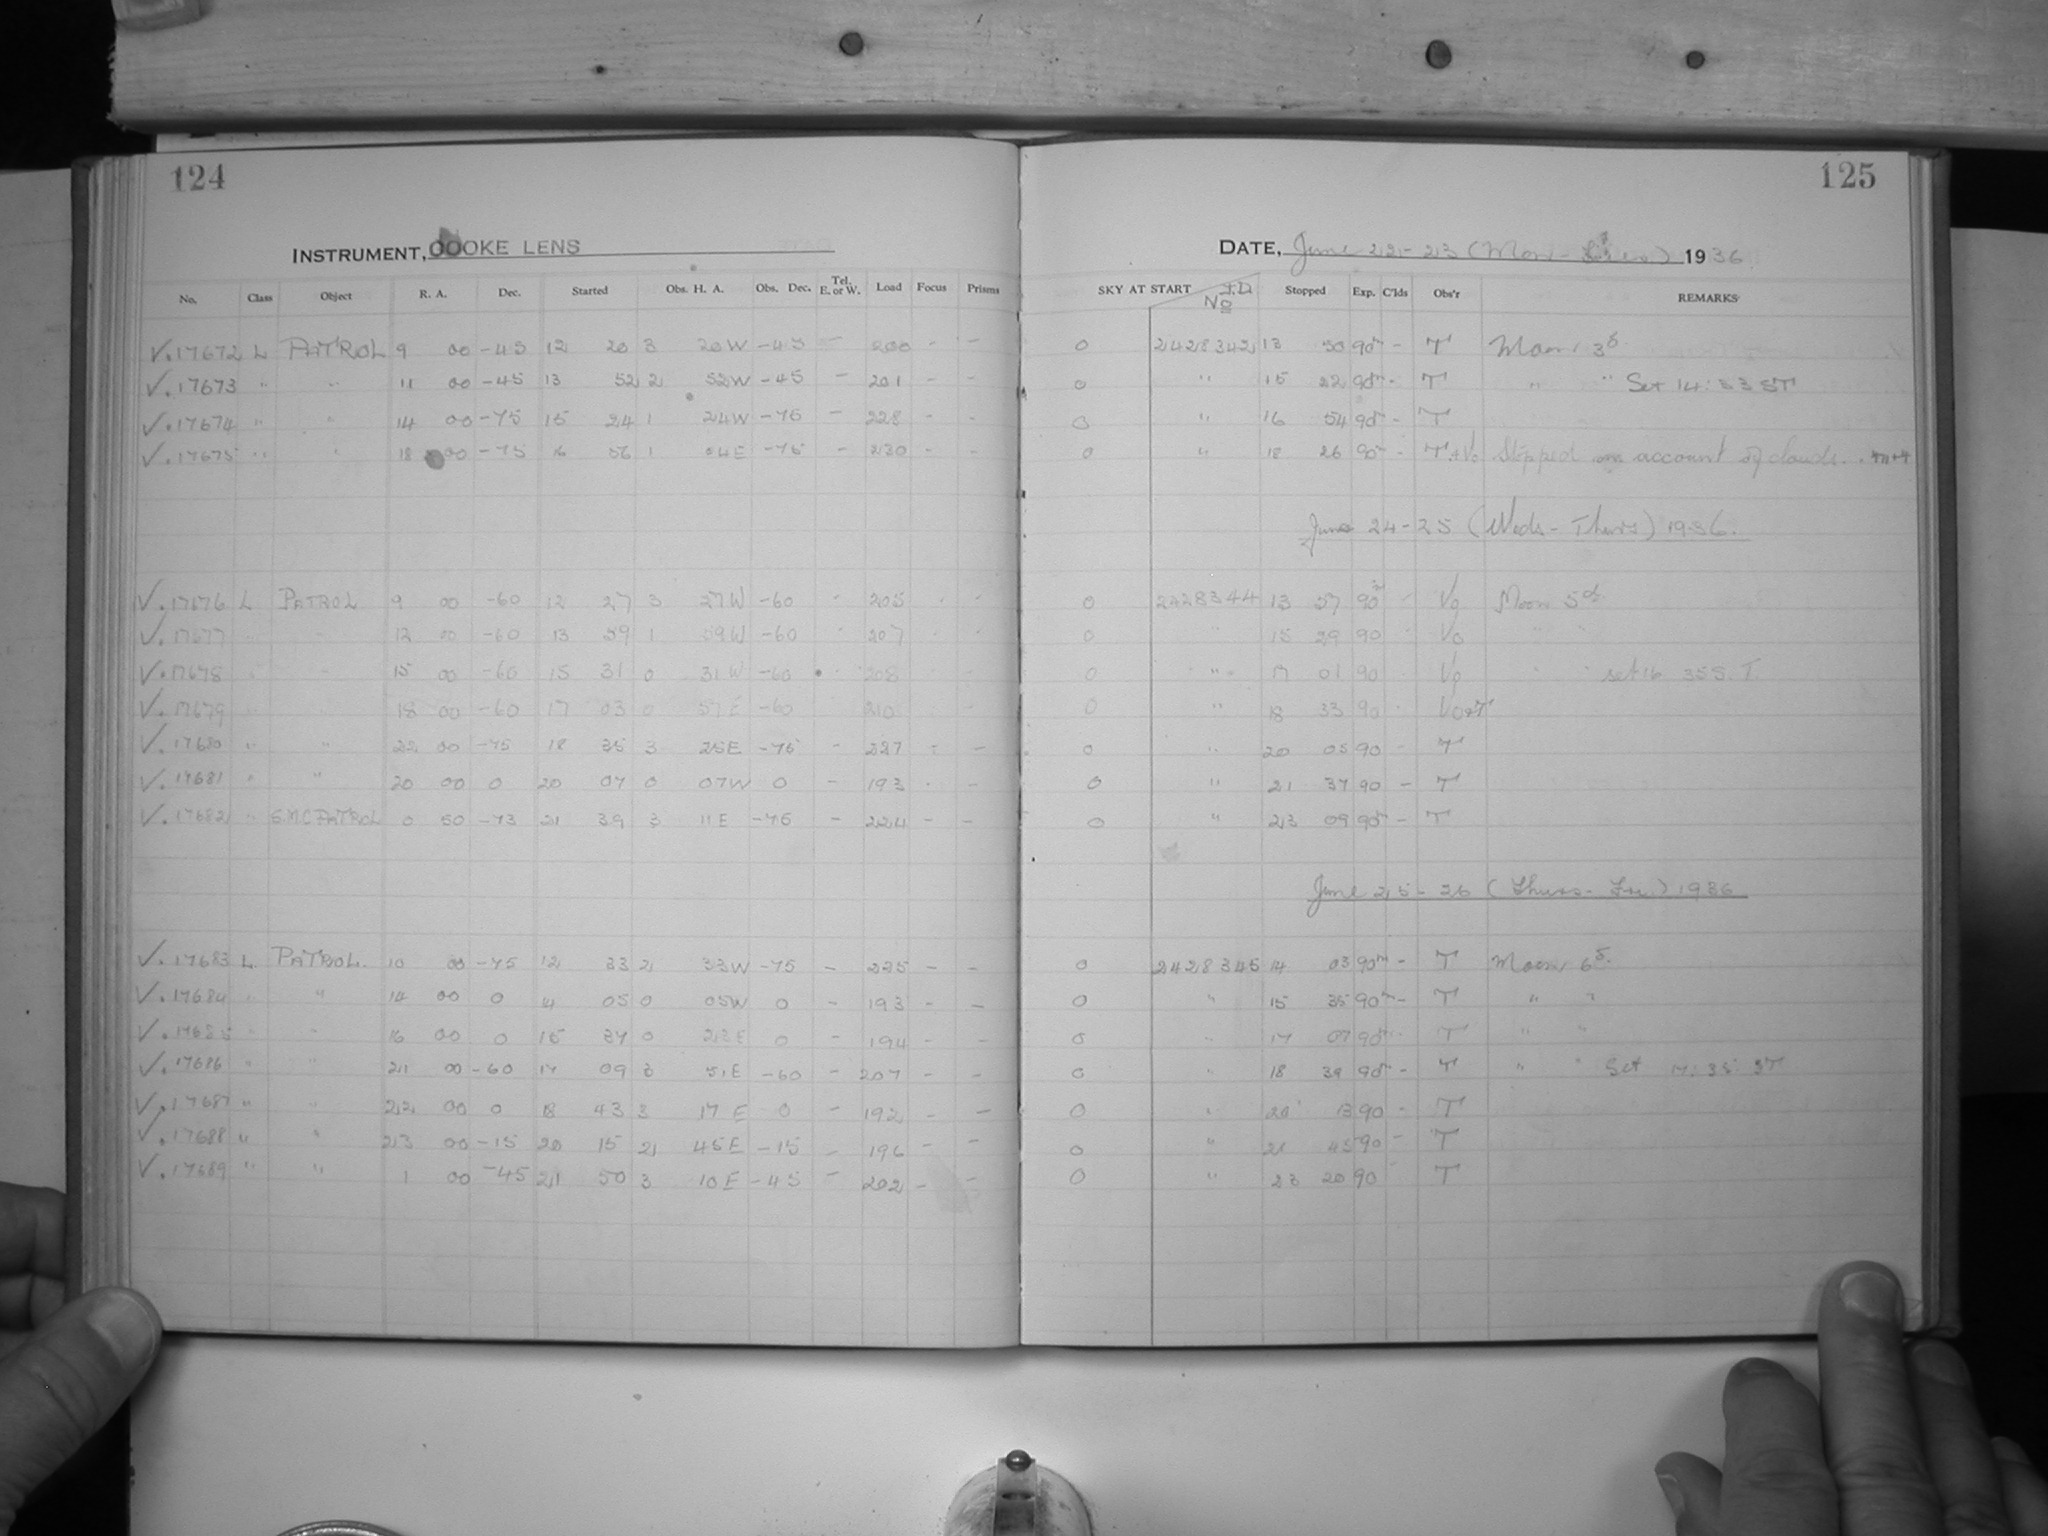 124
125
INSTRUMENT, COOKE LENS
DATE, June 22-23 (Mon - Tues) 1936
No. Class Object R. A. Dec. Started Obs. H. A. Obs. Dec. Tel. E. or W. Load Focus Prisms SKY AT START J.D No Stopped Exp. C'lds Obs'r REMARKS
✓. 17672 L PATROL 9 00 -45 12 20 3 20W -45 - 200 - - 0 2428342 13 50 90m - T Moon 3d
✓. 17673 " " 11 00 -45 13 52 2 52W -45 - 201 - - 0 " 15 22 90m - T " " Set 14:53 ST
✓. 17674 " " 14 00 -75 15 24 1 24W -75 - 228 - - 0 " 16 54 90m - T
✓. 17675 " " 18 00 -75 16 56 1 04E -75 - 230 - - 0 " 18 26 90m - T+Vo Stopped on account of clouds.
June 24-25 (Weds - Thurs) 1936.
✓. 17676 L PATROL 9 00 -60 12 27 3 27W -60 - 205 - - 0 2428344 13 57 90m - Vo Moon 5d.
✓. 17677 " " 12 00 -60 13 59 1 59W -60 - 207 - - 0 " 15 29 90 - Vo " "
✓. 17678 " " 15 00 -60 15 31 0 31W -60 - 208 - - 0 " 17 01 90 - Vo " " set 16 35 S.T.
✓. 17679 " " 18 00 -60 17 03 0 57E -60 210 - 0 " 18 33 90 - Vo+T
✓. 17680 " " 22 00 -75 18 35 3 25E -75 - 227 - - 0 " 20 05 90 - T
✓. 17681 " " 20 00 0 20 07 0 07W 0 - 193 - - 0 " 21 37 90 - T
✓. 17682 " S.M.C PATROL 0 50 -73 21 39 3 11E -75 - 224 - - 0 " 23 09 90m - T
June 25-26 (Thurs - Fri) 1936
✓. 17683 L. PATROL. 10 00 -75 12 33 2 33W -75 - 225 - - 0 2428345 14 03 90m - T Moon 6d.
✓. 17684 " " 14 00 0 14 05 0 05W 0 - 193 - - 0 " 15 35 90m - T " "
✓. 17685 " " 16 00 0 15 37 0 23E 0 - 194 - - 0 " 17 07 90m - T " "
✓. 17686 " " 21 00 -60 17 09 3 51E -60 - 207 - - 0 " 18 39 90m - T " " Set 17:35 ST
✓. 17687 " " 22 00 0 18 43 3 17E 0 - 192 - - 0 " 20 13 90 - T
✓. 17688 " " 23 00 -15 20 15 2 45E -15 - 196 - - 0 " 21 45 90 - T
✓. 17689 " " 1 00 -45 21 50 3 10E -45 - 202 - - 0 " 23 20 90 - T